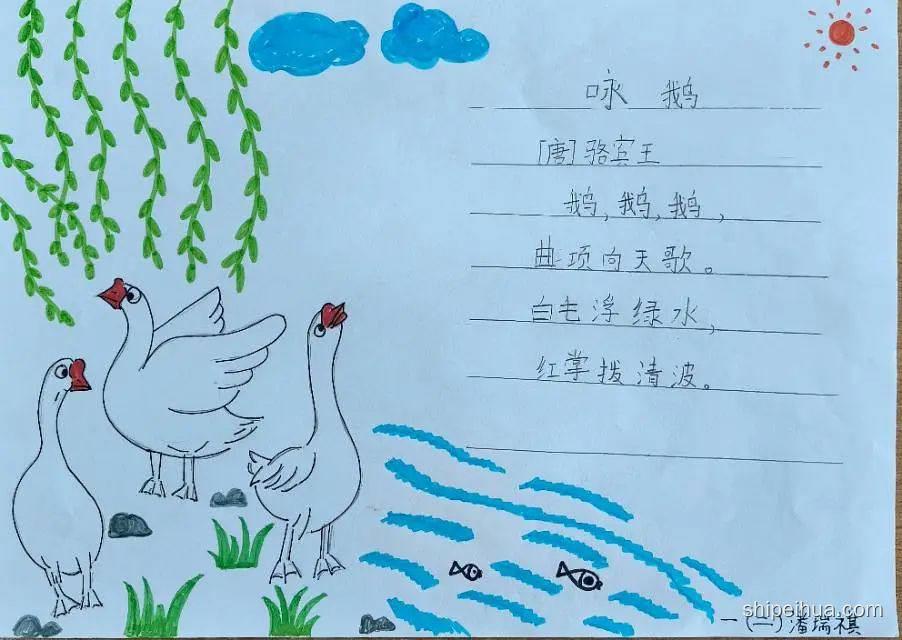 咏鹅
[唐]骆宾王
鹅,鹅,鹅,
曲项向天歌。
白毛浮绿水,
红掌拨清波。
shipeihua.com
一(二)潘瑞祺